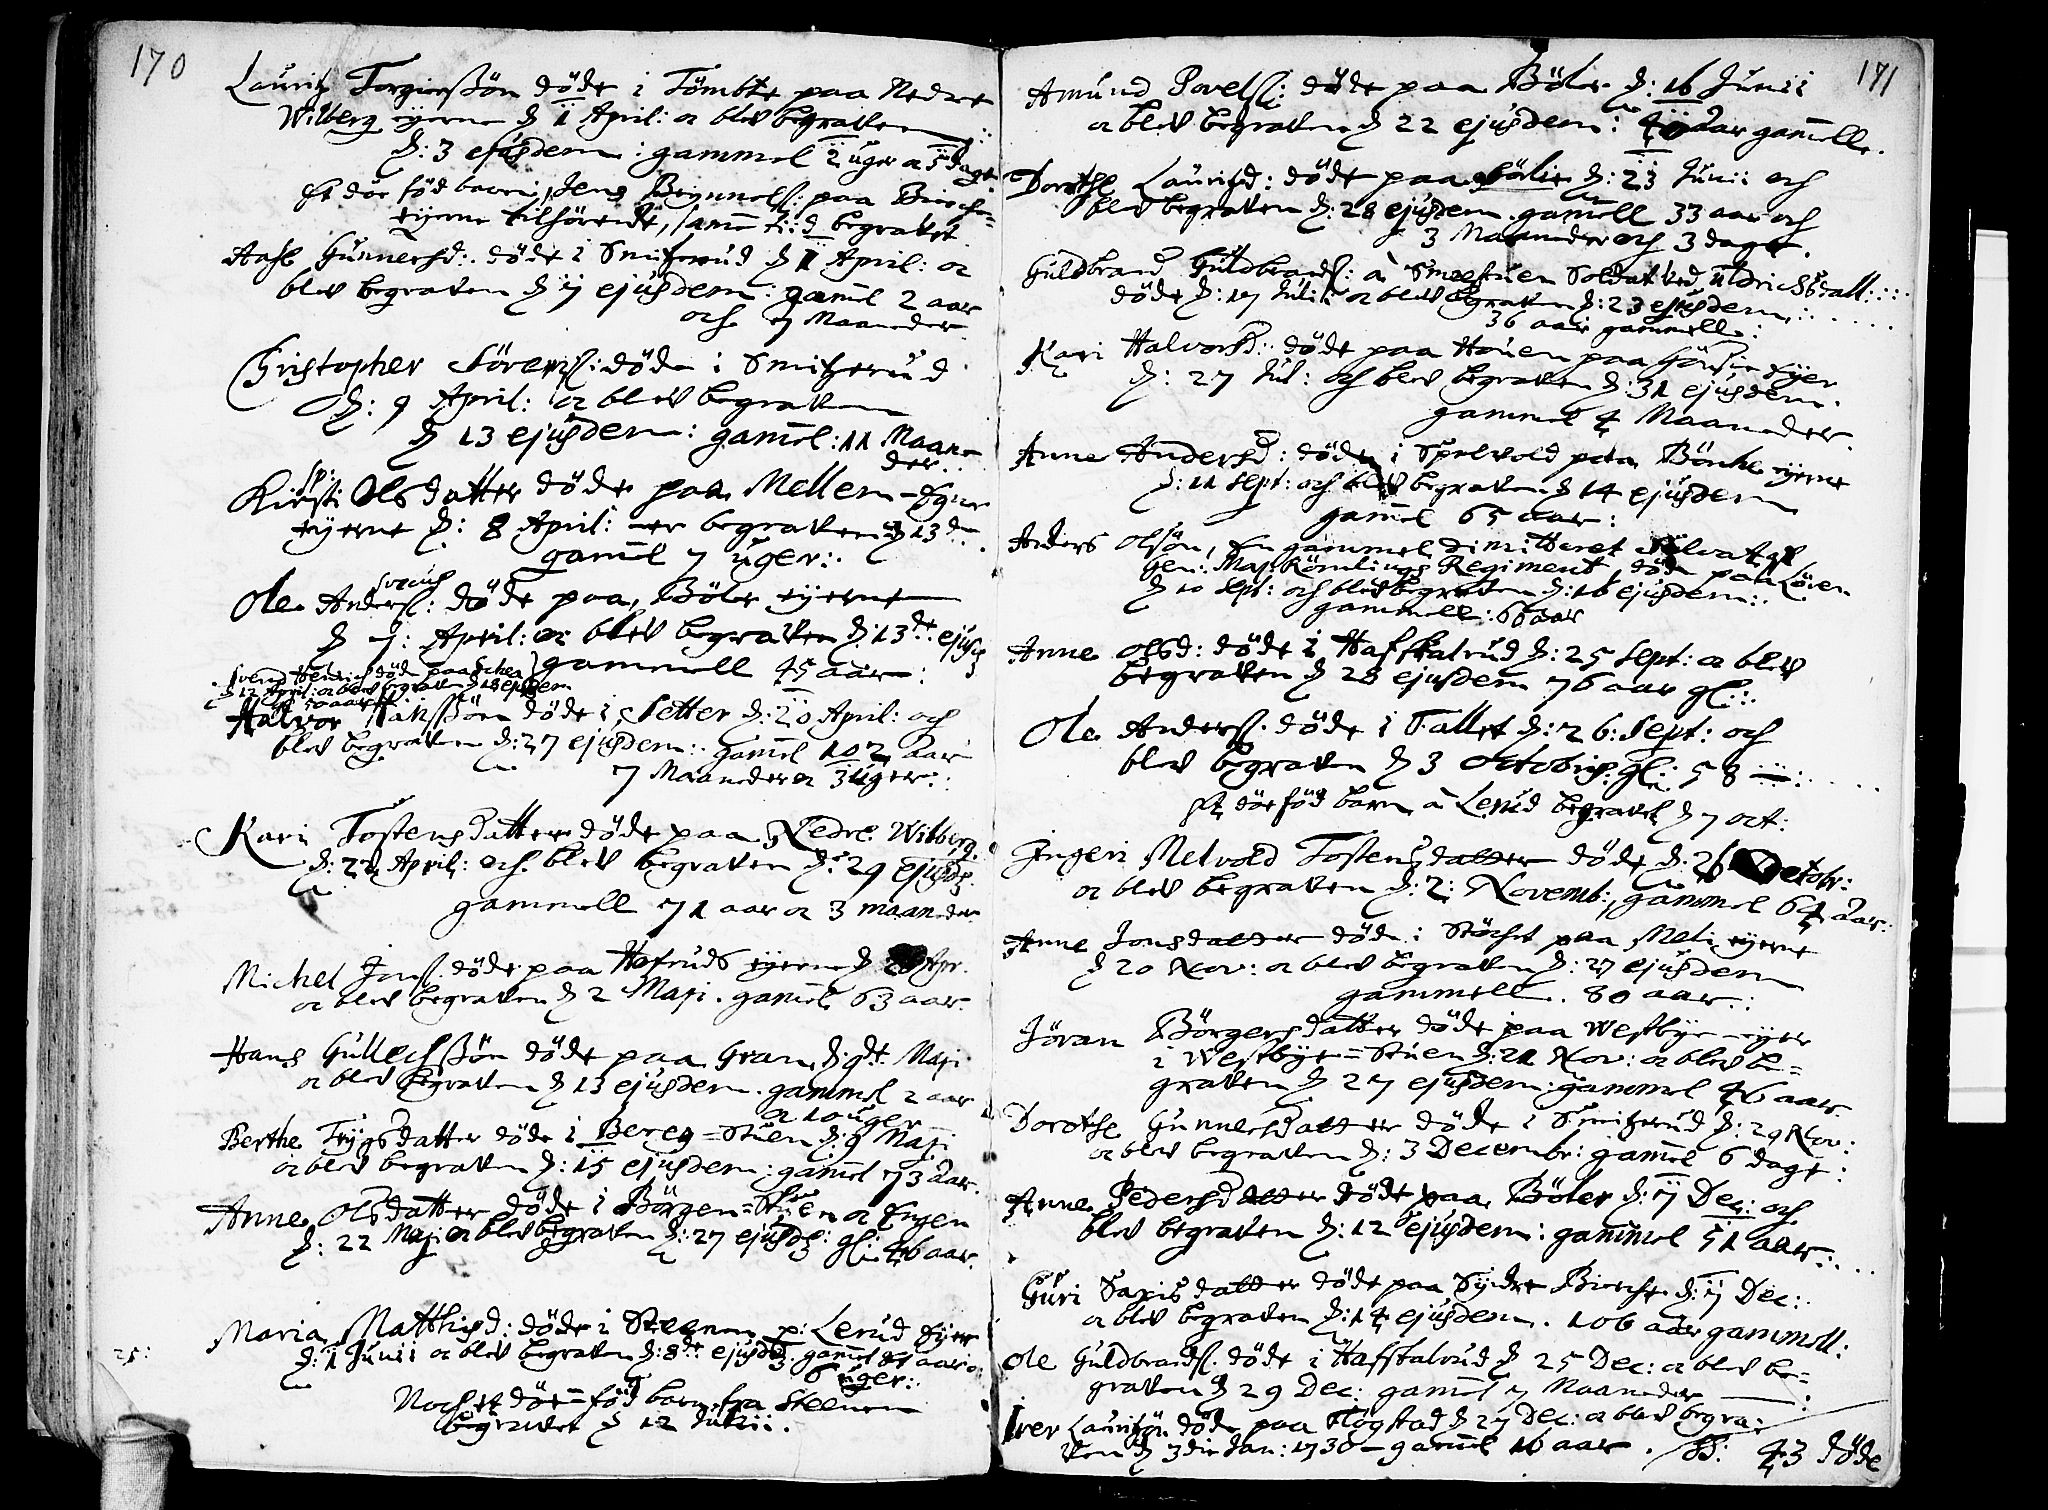 170
Lauritz Torgierssön döde i Tömbte paa Nedre
Wilberg eyerne d 1 April: oc blev begraven
d: 3 ejusdem: gammel 2 uger oc 5 dage
Et död föd barn, Jens paa Bierche=
eyerne tilhörende, samme tid begravet
Aase Gunnersd: döde i Smitzerud d 1 April: oc
blev begraven d 7 ejusdem: gamel 2 aar
och 7 Maaneder
Christopher Sörenss: döde i Smitzerud
d: 9 April: oc blev begraven
d 13 ejusdem: gamel: 11 Maane
der
Kirsti Olsdatter döde paa Mellem-
eyerne d: 8 April: er begraven d 13de
gamel 7 uger:
Ole Anderss: döde paa Böler eyerne
d 7: April: oc blev begraven d: 13de ejusd
gammell 45 aar:
döde paa
d 12 April: oc blev begraven d 18 ejusdem
50 aar
Halvor Hanssön döde i Setter d: 20 April: och
blev begraven d: 27 ejusdem: gamel 102 aar
7 Maaneder oc 3 uger:
Kari Tostensdatter döde paa Nedre Wilberg
d: 22 April: och blev begraven d: 29 ejusd:
gammell 71 aar oc 3 maaneder
Michel Jonss. döde paa Hofruds eyerne d 28 Apr.
oc blev begraven d 2 Maji. gamel 63 aar.
Hans Gullechssön döde paa Gran d: 9de Maji
oc blev begraven d 13 ejusdem. gammel 2 aar
oc 10 uger
Berthe Trygsdatter döde i Bereg=Stuen d: 9 Maji
oc blev begraven d: 15 ejusdem: gamel 73 aar.
Anne Olsdatter döde i Börgen=Stuen oc Engen
d: 22 Maji oc blev begraven d: 27 ejusd: gl: 46 aar.
Maria Matthisd: döde i Steenen p: Lerud Eyer
25:
d: 1 Junii oc blev begraven d: 8de ejusd: gamel aar oc
6 uger:
Noch et död=föd barn fra Steenen
begravet d 12 Junii.
171
Amund Povelss: döde paa Böler d: 16 Junii
oc blev begraven d 22 ejusdem: aar gammell.
Dorothe Lauritzd: döde paa Sölie d: 23 Junii och
blev begraven d: 28 ejusdem. gamell 33 aar och
3 Maaneder och 3 dage.
Guldbrand Guldbrandss: à Smeestuen Soldat ved Uldrichsdall:
döde d: 17 Julii oc blev begraven d: 23 ejusdem:
36 aar gammell.
Kari Halvorsd: döde paa Houen paa eyer
d: 27 Jul: och blev begraven d: 31 ejusdem.
gammel 4 Maaneder
Anne Andersd: döde i Spelvold paa Böncke eyerne
d: 11 Sept: och blev begraven d 14 ejusdem
gamel 65 aar:
Anders Olsön, En gammel dimitteret
Gen: Maj: Römlings Regiment, döde paa Löven
d 10 Sept: och blev begraven d: 16 ejusdem:
gammell: 66 aar
Anne Olsd: döde i Haffkalrud d: 25 Sept: oc blev
begraven d 28 ejusdem 76 aar gl:
Ole Anderss. döde i Fallet d: 26: Sept: och
blev begraven d 3 Octobris: gl: 58
Et död föd barn à Lerud begravet d 7 oct:
Ingeri Melvold Tostensdatter döde d: 26 Octobr:
oc blev begraven d: 2: Novemb:, gammel 64 aar.
Anne Jonsdatter döde i paa Meli eyerne
d 20 Nov: oc blev begraven d: 27 ejusdem
gammell. 80 aar:
Jöran Börgersdatter döde paa Westbye eyer
i Westbye=Stuen d: 21 Nov: oc blev be=
graven d 27 ejusdem: gammel 46 aar.
Dorothe Gunnersdatter döde i Smitzerud d: 29 Nov:
oc blev begraven d: 3 Decembr: gamel 6 dage:
Anne Pedersdatter döde paa Böler d: 7 Dec: och
blev begraven d: 12 ejusdem: gammel 51 aar:
Guri Saxisdatter döde paa Syndre Bierche d: 7 Dec:
oc blev begraven d: 14 ejusdem. 106 aar gammell:
Ole Guldbrandss. döde i Haffkalrud d 25 Dec: oc blev be=
graven d 29 Dec: gamel 7 Maaneder
Iver Lauritzön döde paa Högstad d 27 Dec: oc blev begra=
ven d 3die Jan: 1730 - gamel 16 aar. 43 döde